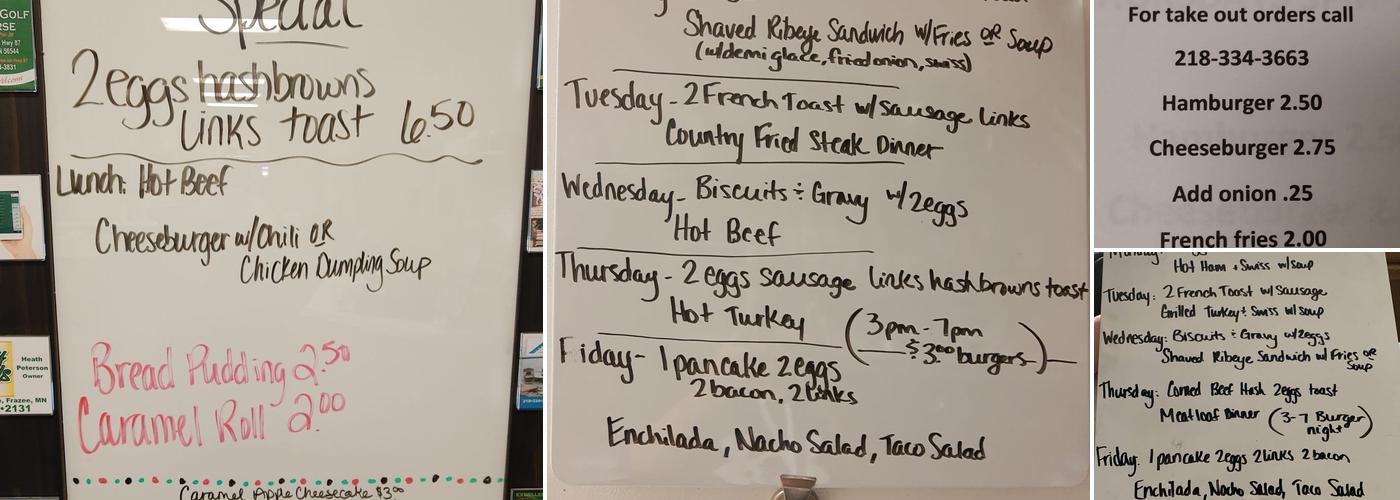 Special
2 eggs hashbrowns
links toast 6.50
Lunch: Hot Beef
Cheeseburger w/Chili OR
Chicken Dumpling Soup
Bread Pudding 2.50
Caramel Roll 2.00
Caramel Apple Cheesecake $3.00
GOLF
Hwy 87
N 56544
-3831
Heath
Peterson
Owner
, Frazee, MN
-2131
Shaved Ribeye Sandwich w/Fries OR Soup
(w/demi glace, fried onion, swiss)
Tuesday - 2 French Toast w/ sausage links
Country Fried Steak Dinner
Wednesday - Biscuits & Gravy w/ 2 eggs
Hot Beef
Thursday - 2 eggs sausage links hashbrowns toast
Hot Turkey (3pm - 7pm
$3.00 burgers)
Friday - 1 pancake 2 eggs
2 bacon, 2 links
Enchilada, Nacho Salad, Taco Salad
For take out orders call
218-334-3663
Hamburger 2.50
Cheeseburger 2.75
Add onion .25
French fries 2.00
Hot Ham & Swiss w/ soup
Tuesday: 2 French Toast w/ Sausage
Grilled Turkey & Swiss w/ soup
Wednesday: Biscuits & Gravy w/ 2 eggs
Shaved Ribeye Sandwich w/ Fries or
Soup
Thursday: Corned Beef Hash 2 eggs toast
Meatloaf Dinner (3-7 Burger
night)
Friday: 1 pancake 2 eggs 2 links 2 bacon
Enchilada, Nacho Salad, Taco Salad